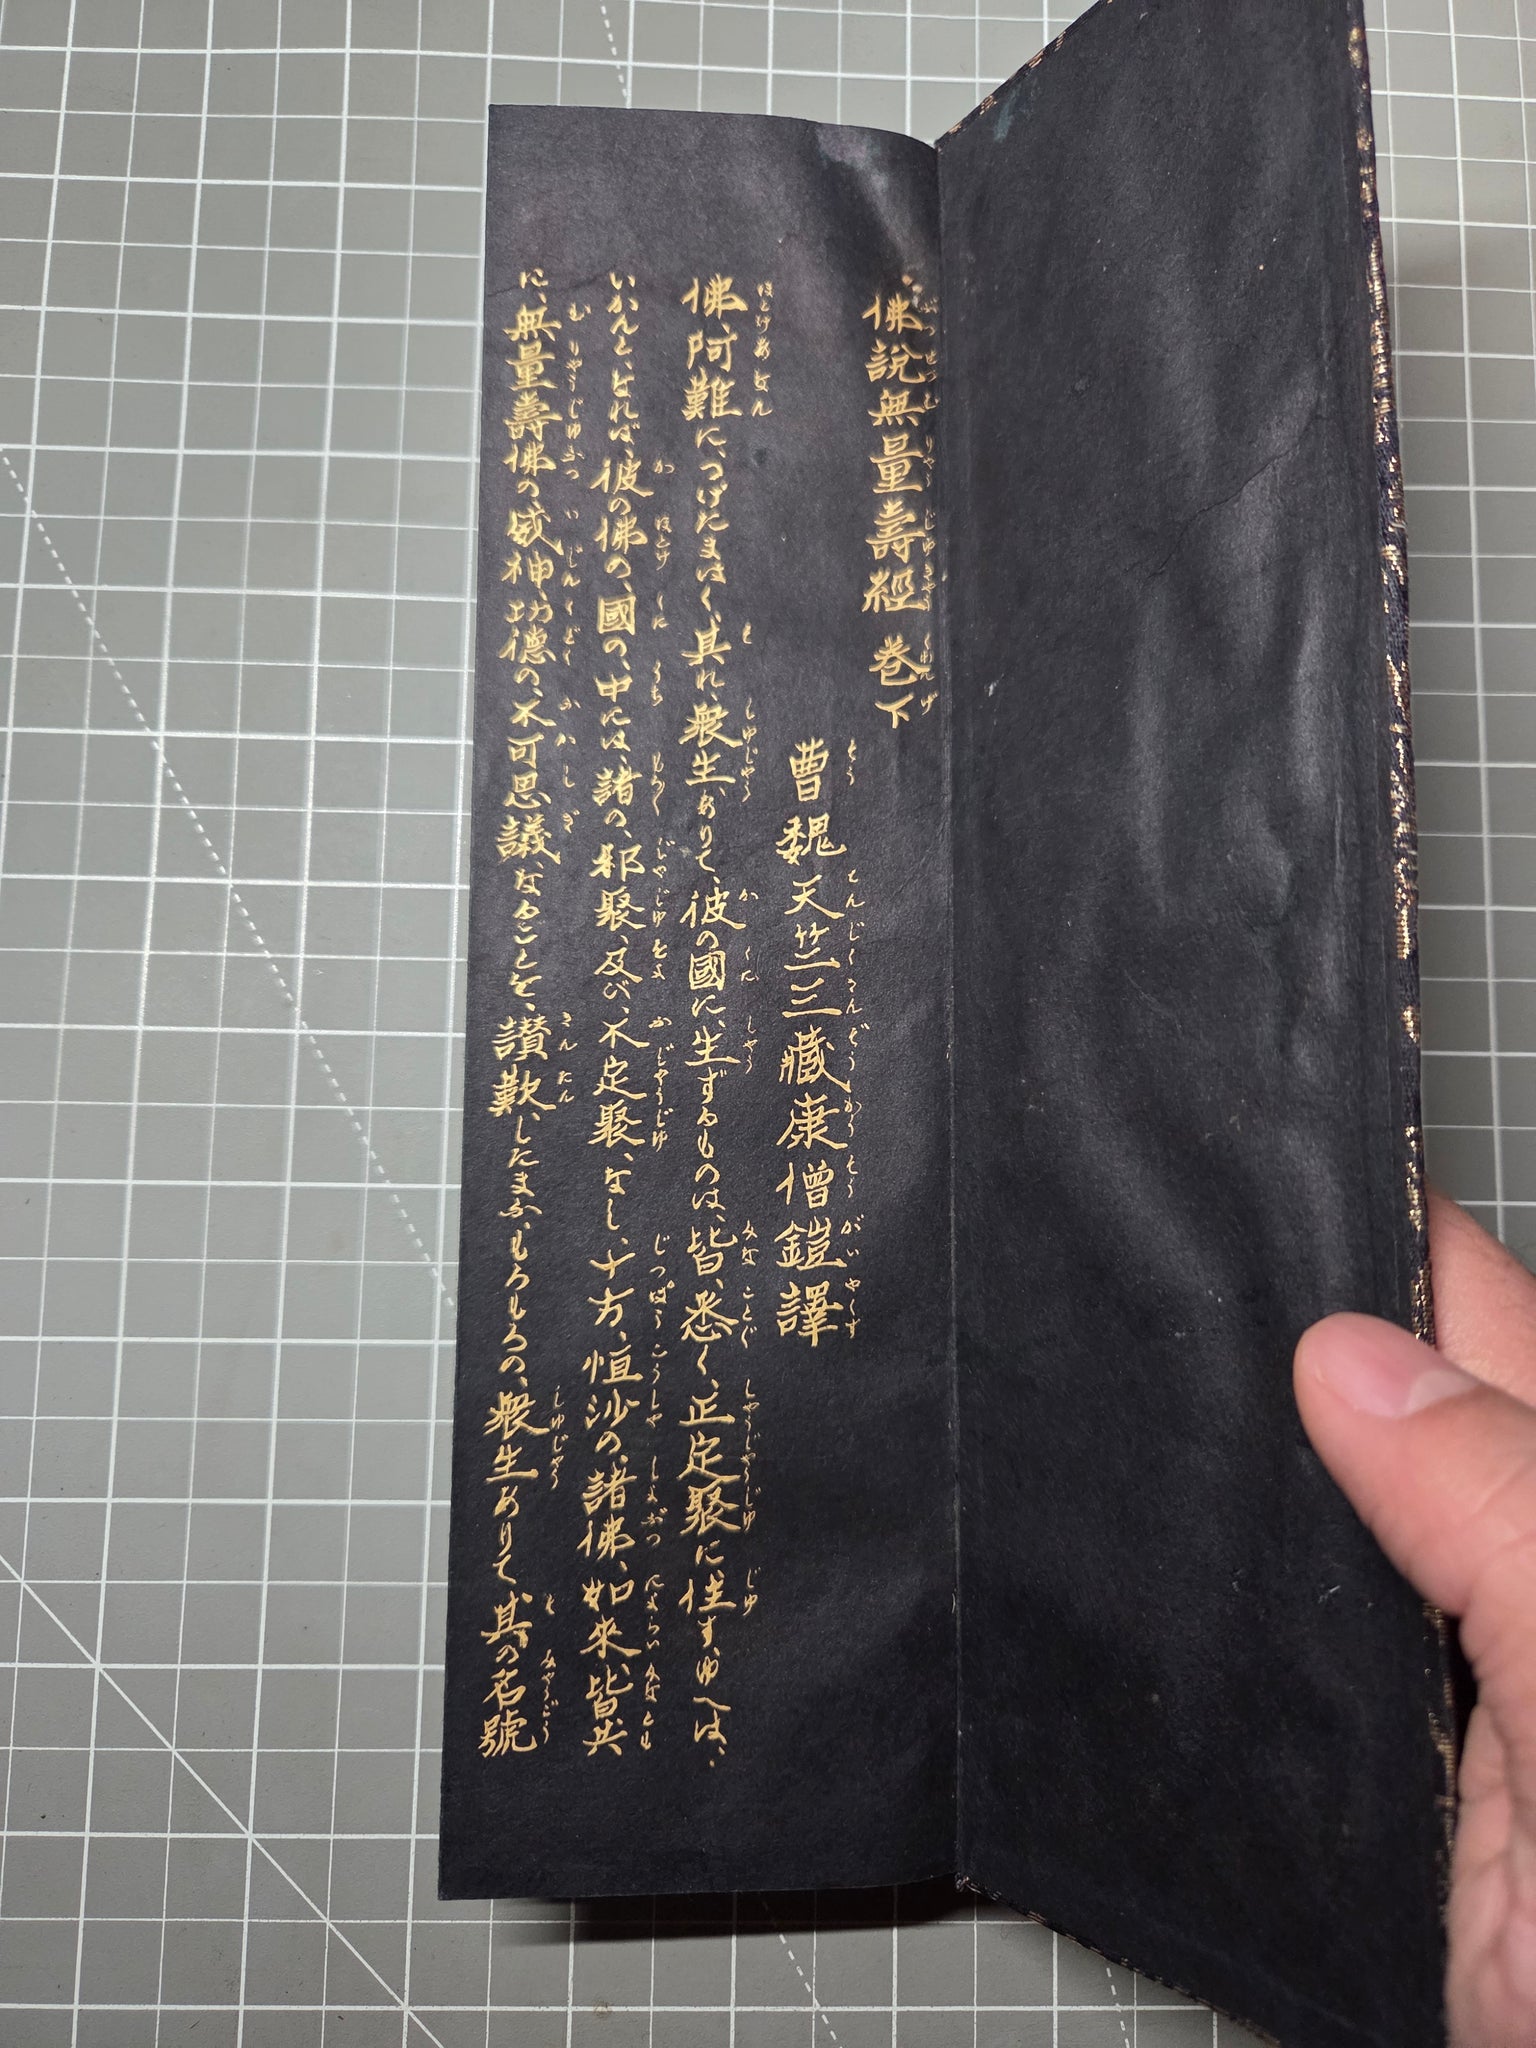 佛說無量壽經 巻下
曹魏天竺三藏康僧鎧譯
佛、阿難に、つげたまはく、其れ、衆生、ありて、彼の國に、生ずるものは、皆、悉く、正定聚に住す、ゆへは、
いかんと、なれば、彼の佛の、國の、中には、諸の、邪聚、及び、不定聚、なし、十方、恒沙の、諸佛、如來、皆、共
に、無量壽佛の、威神、功德の、不可思議、なることを、讃歎、したまふ、もろもろの、衆生ありて、其の名號